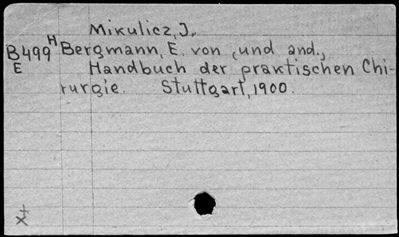 Mikulicz, J.
H
B499 Bergmann, E. von, und and.,
E Handbuch der praktischen Chi-
rurgie. Stuttgart, 1900.
X+